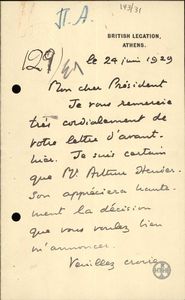 Π. Α.
143/31
BRITISH LEGATION,
ATHENS.
129
le 24 juin 1929
Mon cher Président
Je vous remercie
très cordialement de
votre lettre d'avant-
hier. Je suis certain
que Mr. Arthur Hender-
son appréciera haute-
ment la décision
que vous voulez bien
m'annoncer.
Veuillez croire